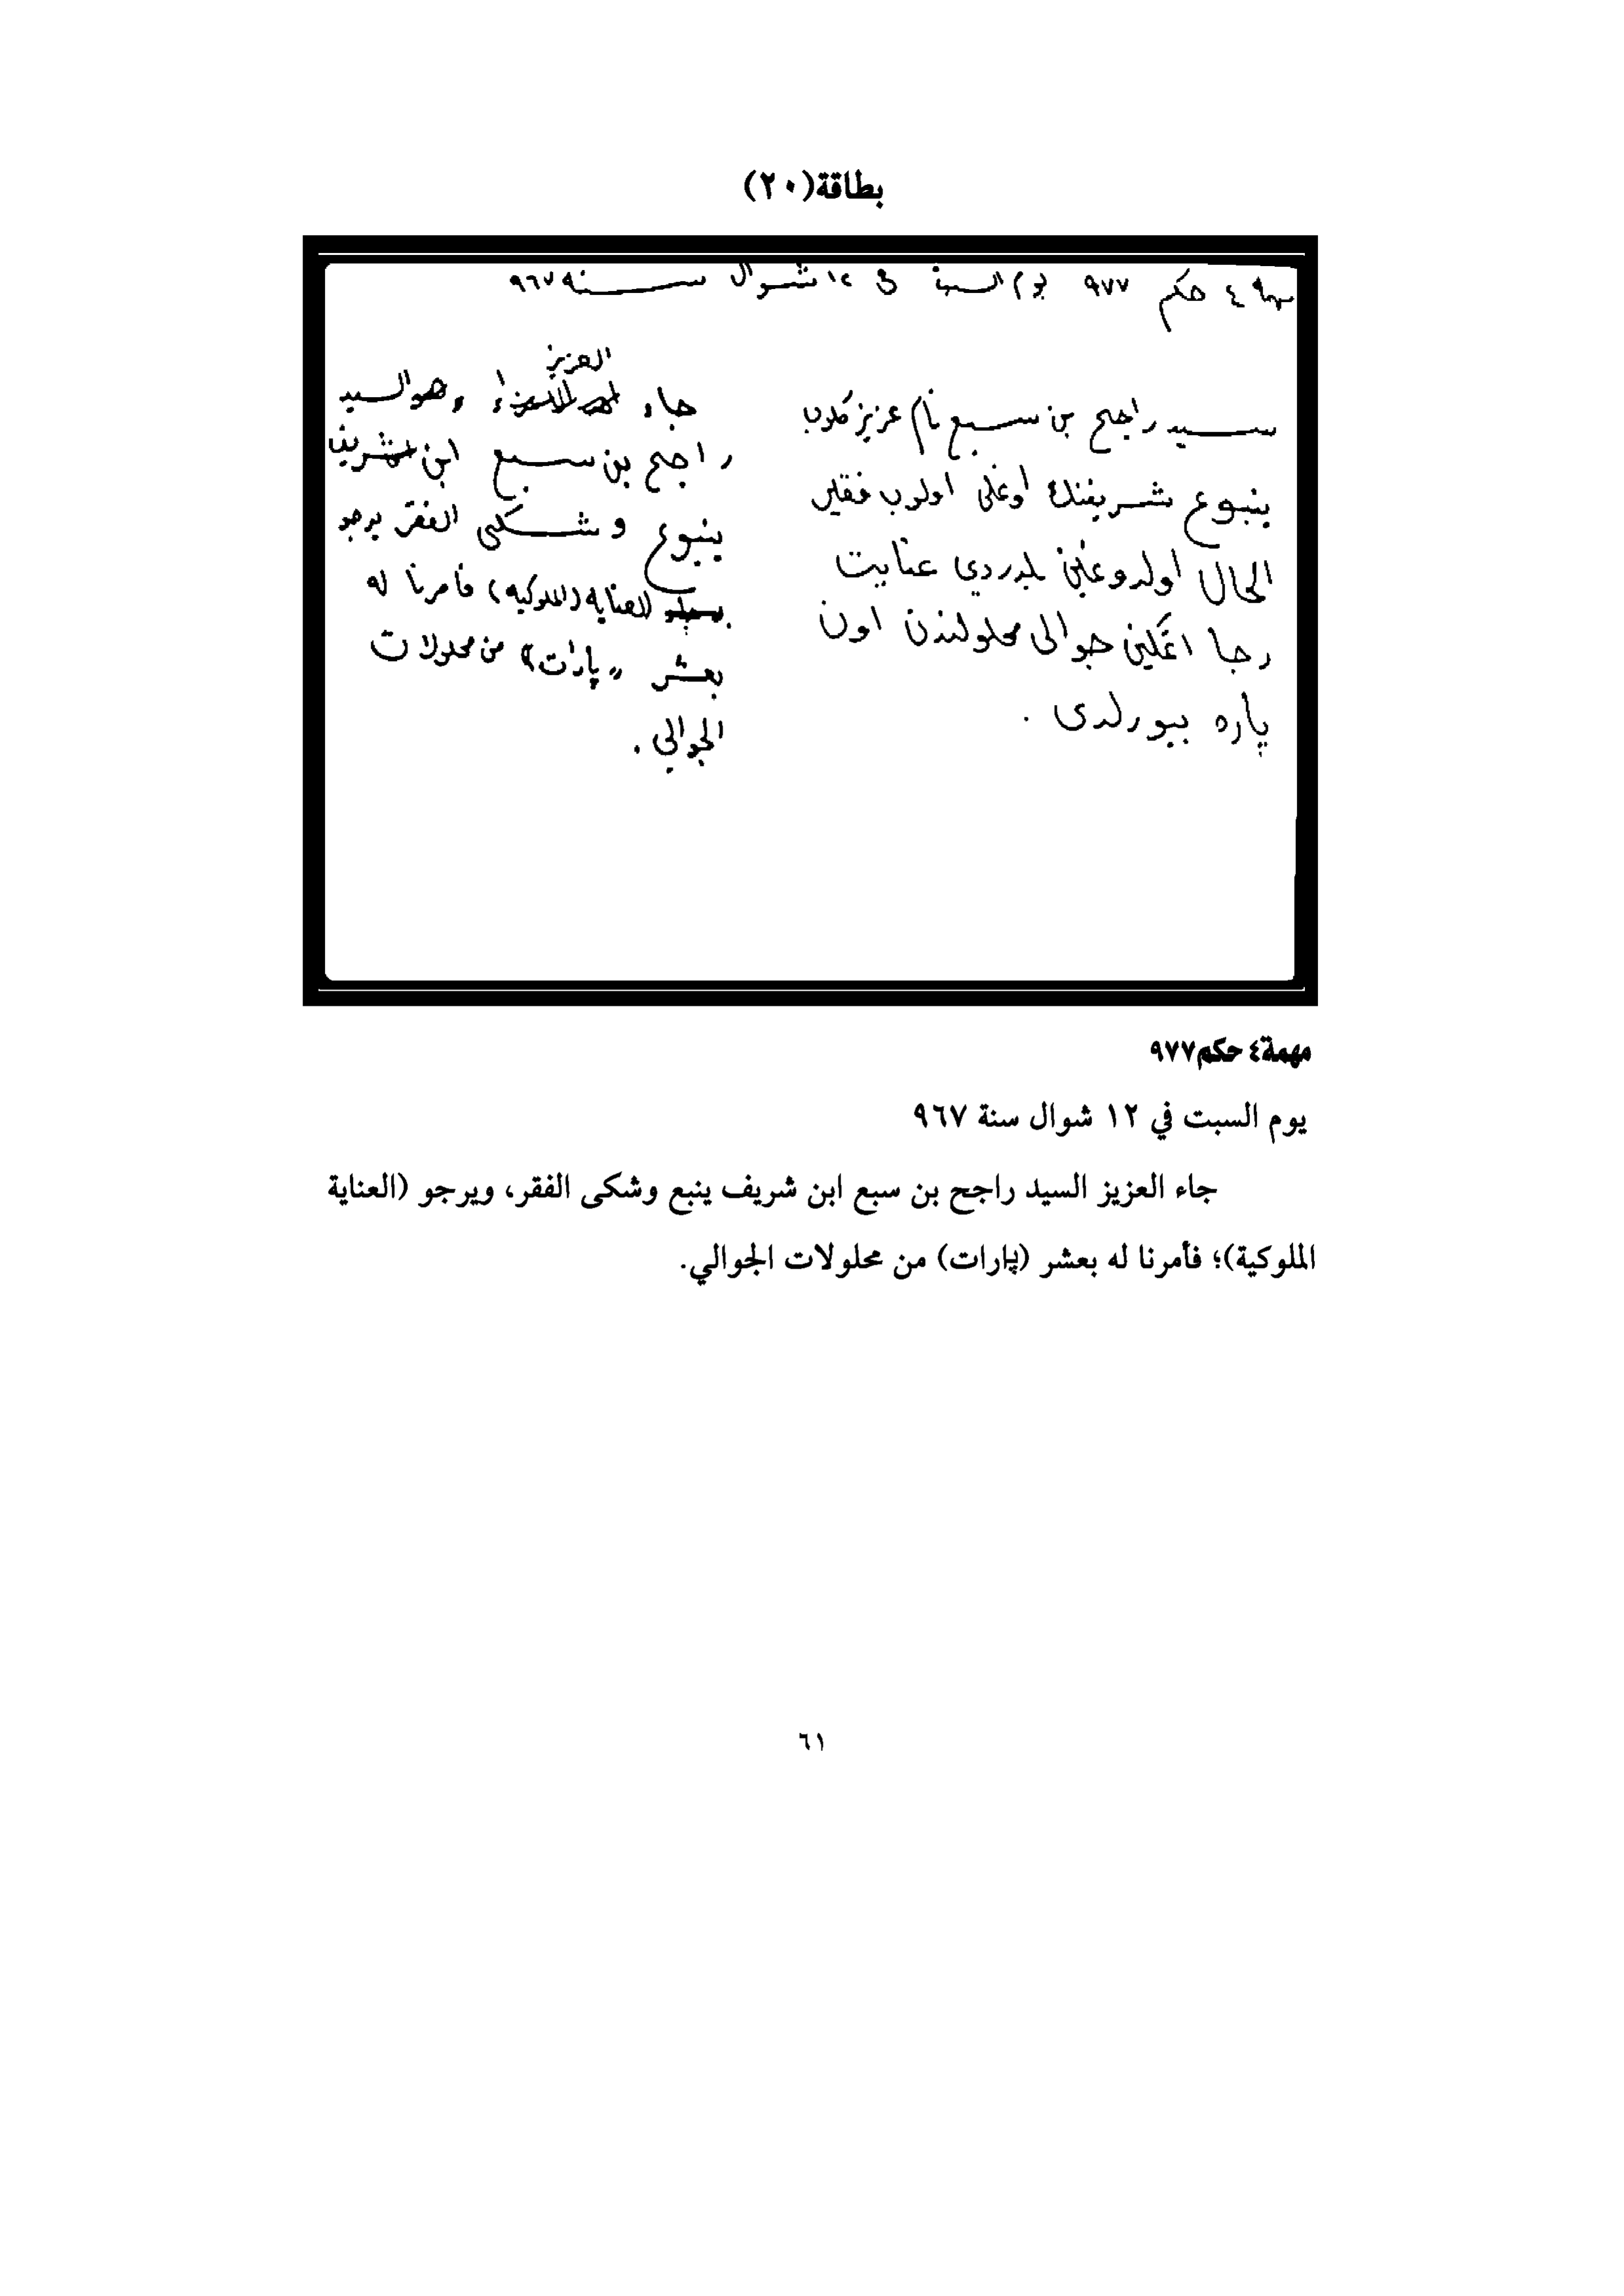 بطاقة(٢٠)
مهمة ٤ حكم ٩٧٧ يوم السبت في ١٢ شوال سنة ٩٦٧
سيد راجح بن سبع نام عزيز كلوب
ينبوع شريفنك اوغلى اولوب فقير
الحال اولدوغين بلدردي عنايت
رجا اتمكين جوالى محلولندن اون
پاره بيورلدى .
العزيز
جاء وهو السيد
راجح بن سبع ابن شريف
ينبوع وشكى الفقر يرجو
العناية (الملوكيه) فأمرنا له
بعشر "پارات" من محلولات
الجوالي .
مهمة٤ حكم٩٧٧
يوم السبت في ١٢ شوال سنة ٩٦٧
جاء العزيز السيد راجح بن سبع ابن شريف ينبع وشكى الفقر، ويرجو (العناية
الملوكية)؛ فأمرنا له بعشر (پارات) من محلولات الجوالي.
٦١